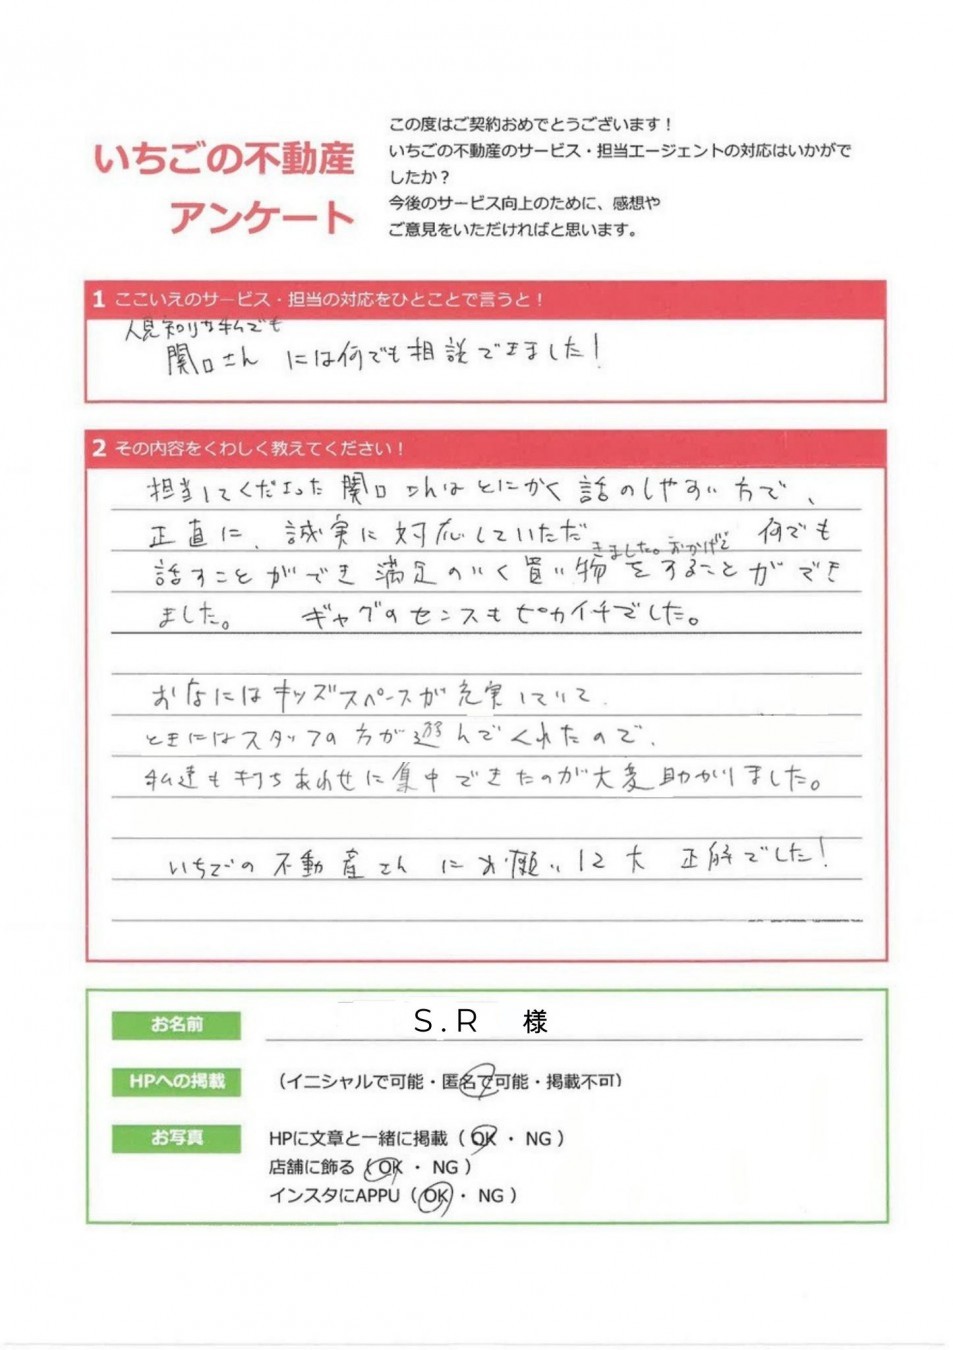 いちごの不動産
アンケート
この度はご契約おめでとうございます！
いちごの不動産のサービス・担当エージェントの対応はいかがで
したか？
今後のサービス向上のために、感想や
ご意見をいただければと思います。
1 ここいえのサービス・担当の対応をひとことで言うと！
人見知りな私でも
関口さん には何でも相談できました！
2 その内容をくわしく教えてください！
担当してくださった関口さんはとにかく話のしやすい方で、
正直に、誠実に対応していただ
きました。おかげで 何でも
話すことができ満足のいく買い物をすることができ
ました。 ギャグのセンスもピカイチでした。
キッズスペースが充実していて、
ときにはスタッフの方が遊んでくれたので、
私達も打ちあわせに集中できたのが大変助かりました。
いちごの不動産さんにお願い 大正解でした！
お名前 S.R 様
HPへの掲載 （イニシャルで可能・匿名で可能・掲載不可）
お写真 HPに文章と一緒に掲載（ OK ・ NG ）
店舗に飾る（ OK ・ NG ）
インスタにAPPU（ OK ・ NG ）